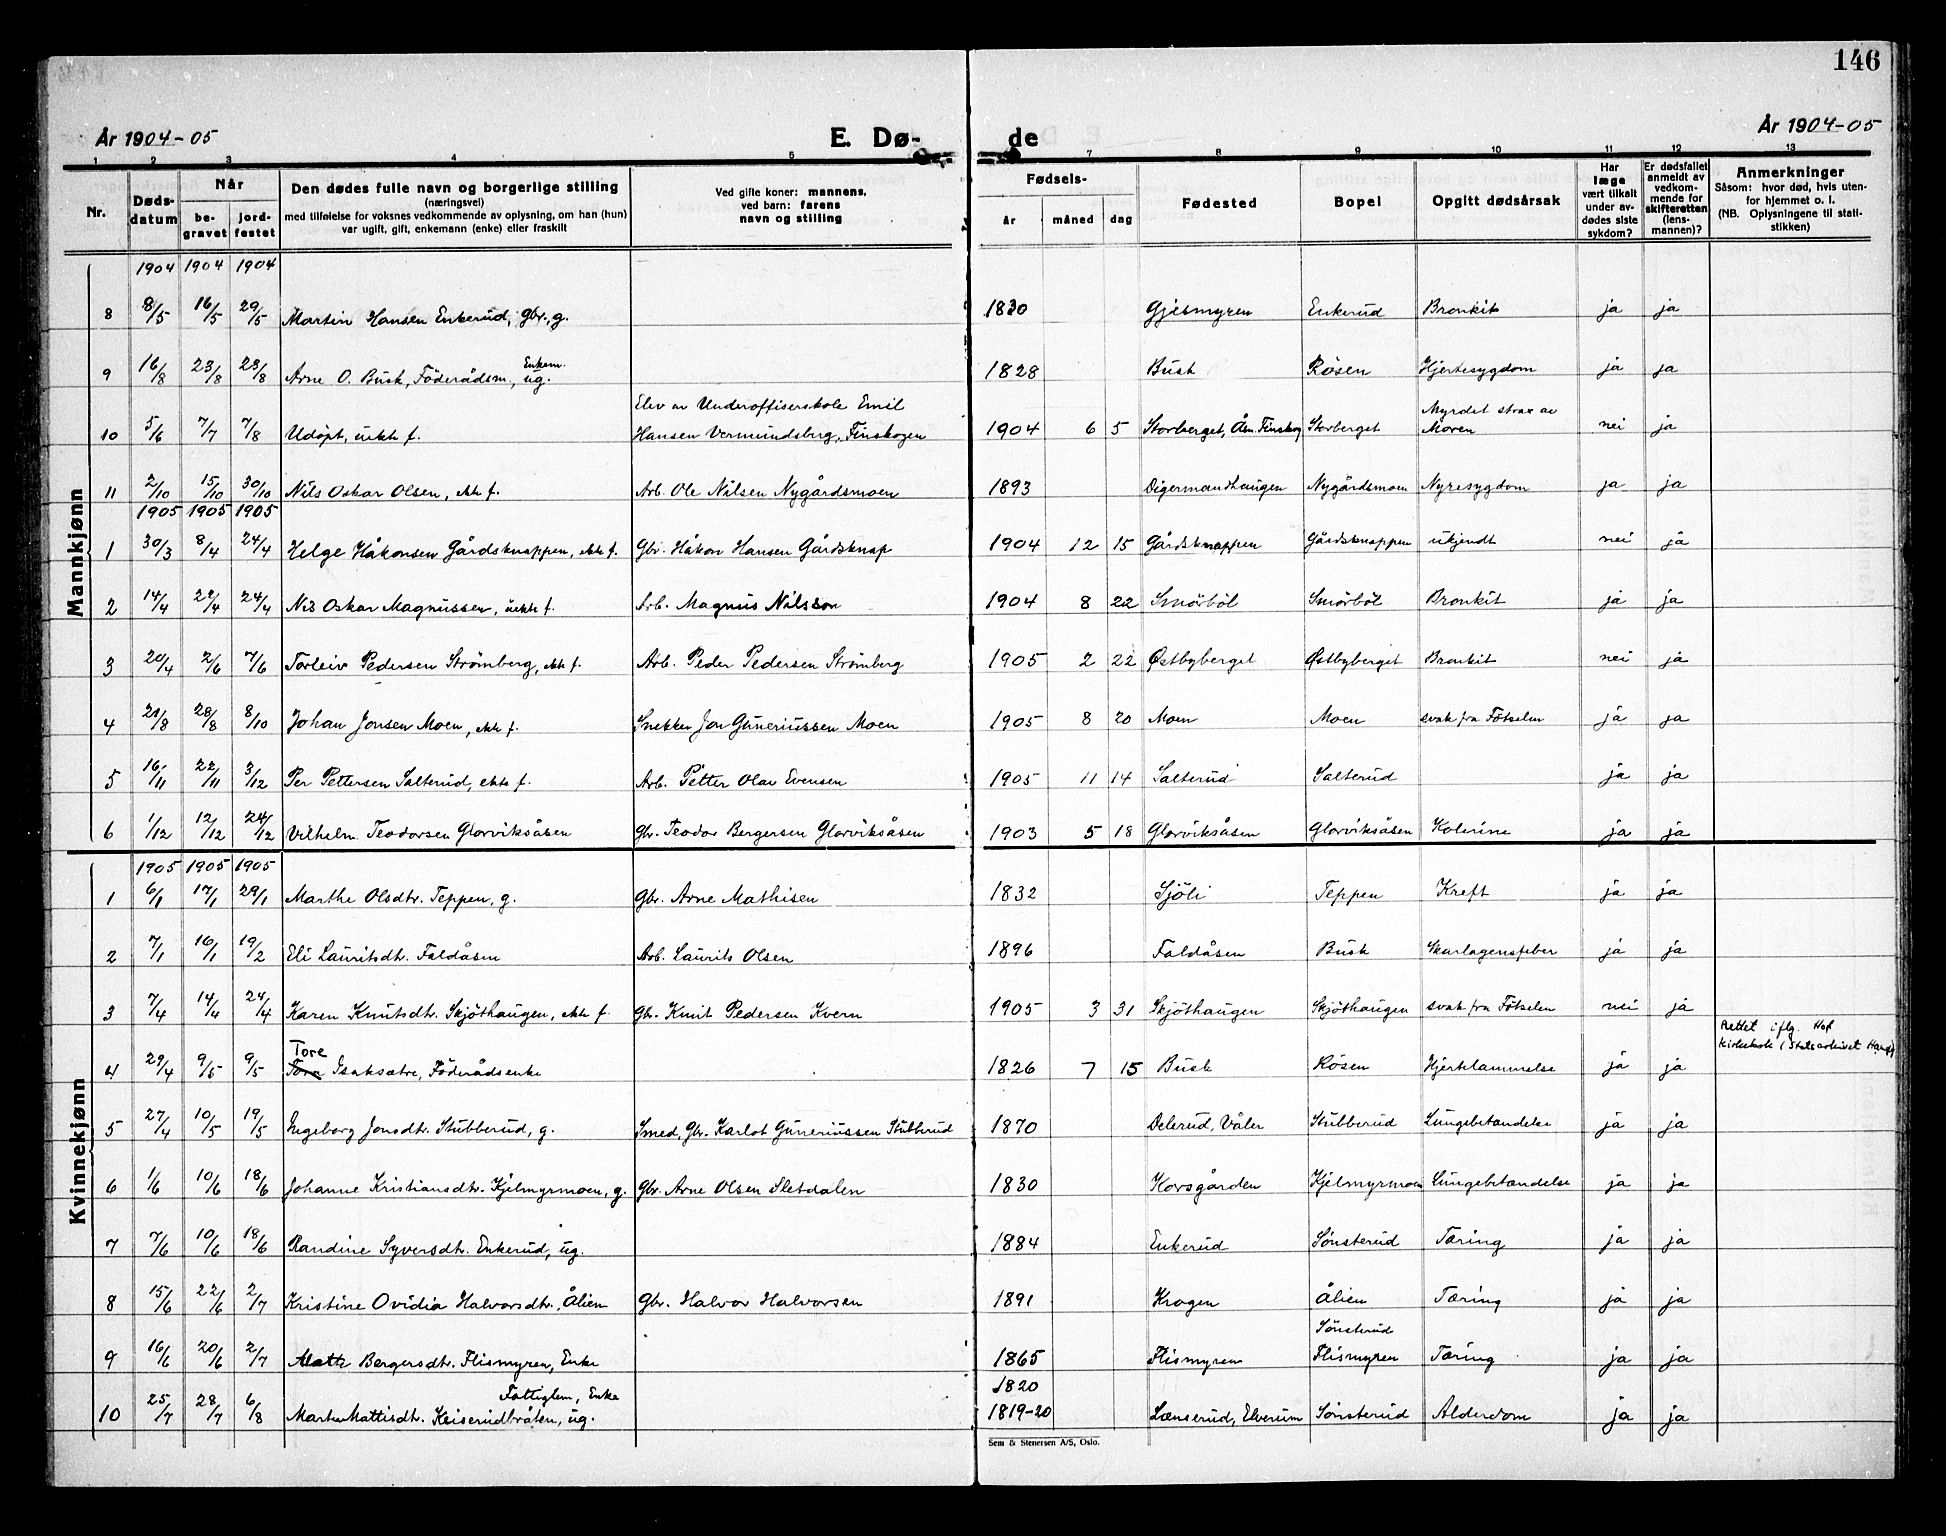 146
År 1904-05 E. Dø- de År 1904-05
1 2 3 4 5 7 8 9 10 11 12 13
Nr. Døds-datum Når be-gravet jord-festet Den dødes fulle navn og borgerlige stilling (næringsvei) med tilføielse for voksnes vedkommende av oplysning, om han (hun) var ugift, gift, enkemann (enke) eller fraskilt Ved gifte koner: mannens, ved barn: farens navn og stilling Fødsels- år måned dag Fødested Bopel Opgitt dødsårsak Har læge vært tilkalt under av-dødes siste sykdom? Er dødsfallet anmeldt av vedkom-mende for skifteretten (lens-mannen)? Anmerkninger Såsom: hvor død, hvis uten-for hjemmet o. l. (NB. Oplysningene til stati-stikken)
Mannkjønn
1904 1904 1904
8 8/5 16/5 29/5 Martin Hansen Enkerud, gbr., g. 1830 Gjesmyren Enkerud Bronkit ja ja
Enkem.
9 16/8 23/8 23/8 Arne O. Busk, Föderådsm, ug. 1828 Busk Røsen Hjertesygdom ja ja
Elev av Underoffiserskole Emil Myrdet strax av
10 5/6 7/7 7/8 Udöpt, uekte f. Hansen Vermundsberg, Finskogen 1904 6 5 Storberget, Åsn. Finskog Storberget Moren nei ja
11 2/10 15/10 30/10 Nils Oskar Olsen, ekte f. Arb. Ole Nilsen Nygårdsmoen 1893 Digermandhaugen Nygårdsmoen Nyresygdom ja ja
1905 1905 1905
1 30/3 8/4 24/4 Helge Håkonsen Gårdsknappen, ekte f. Gbr. Håkon Hansen Gårdsknap 1904 12 15 Gårdsknappen Gårdsknappen ukjendt nei ja
2 14/4 22/4 24/4 Nils Oskar Magnussen, uekte f. Arb. Magnus Nilsson 1904 8 22 Smörböl Smörböl Bronkit ja ja
3 20/4 2/6 7/6 Torleiv Pedersen Strömberg, ekte f. Arb. Peder Pedersen Strömberg 1905 2 22 Østbyberget Østbyberget Bronkit nei ja
4 21/8 28/8 8/10 Johan Jonsen Moen, ekte f. Snekker Jon Guneriussen Moen 1905 8 20 Moen Moen svak fra Fötselen ja ja
5 16/11 22/11 3/12 Per Pettersen Salterud, ekte f. Arb. Petter Olav Evensen 1905 11 14 Salterud Salterud ja ja
6 1/12 12/12 24/12 Vilhelm Teodorsen Glorviksåsen Gbr. Teodor Bergersen Glorviksåsen 1903 5 18 Glorviksåsen Glorviksåsen Kolerine ja ja
Kvinnekjønn
1905 1905 1905
1 6/1 17/1 29/1 Marthe Olsdtr. Teppen, g. Gbr. Arne Mathisen 1832 Sjöli Teppen Kreft ja ja
2 7/1 16/1 19/2 Eli Lauritsdtr. Faldåsen Arb. Laurits Olsen 1896 Faldåsen Busk Skarlagensfeber ja ja
3 7/4 14/4 24/4 Karen Knutsdtr. Skjöthaugen, ekte f. Gbr. Knut Pedersen Kvern 1905 3 31 Skjöthaugen Skjöthaugen svak fra Fötselen nei ja
Rettet iflg. Hof
Tore kirkebok (Statsarkivet Hamar)
4 29/4 9/5 9/5 Tora Isaksætre, Föderådsenke 1826 7 15 Busk Røsen Hjertelammelse ja ja
5 27/4 10/5 19/5 Ingeborg Jonsdtr. Stubberud, g. Smed, Gbr. Karlot Guneriussen Stubberud 1870 Delerud, Våler Stubberud Lungebetændelse ja ja
6 1/6 10/6 18/6 Johanne Kristiansdtr. Kjelmyrmoen, g. Gbr. Arne Olsen Sletdalen 1830 Korsgården Kjelmyrmoen Lungebetændelse ja ja
7 7/6 10/6 18/6 Randine Syversdtr. Enkerud, ug. 1884 Enkerud Sønsterud Tæring ja ja
8 15/6 22/6 2/7 Kristine Ovidia Halvorsdtr., Ålien Gbr. Halvor Halvorsen 1891 Krogen Ålien Tæring ja ja
Sønsterud
9 16/6 20/6 2/7 Mathe Bergersdtr. Flismyren, Enke 1865 Flismyren Flismyren Tæring ja ja
Fattiglem, Enke 1820
10 25/7 28/7 6/8 Marte Mattisdtr. Keiserudbråten, ug. 1819-20 Lænserud, Elverum Sønsterud Alderdom ja ja
Sem & Stenersen A/S, Oslo.